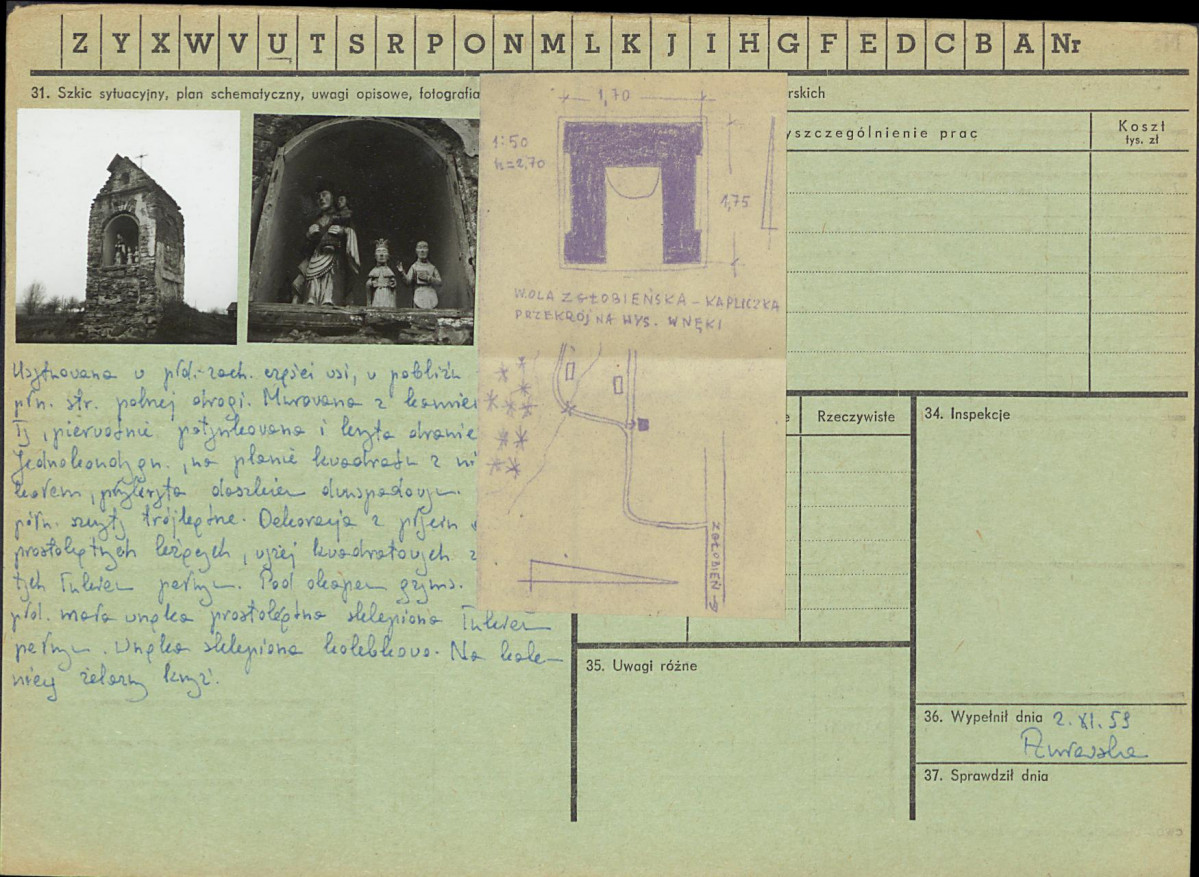 Z Y X W V U T S R P O N M L K J I H G F E D C B A Nr
31. Szkic sytuacyjny, plan schematyczny, uwagi opisowe, fotografia
rskich
yszczególnienie prac
Koszt
tys. zł
1,70
1:50
h=2,70
1,75
WOLA ZGŁOBIEŃSKA - KAPLICZKA
PRZEKRÓJ NA WYS. WNĘKI
ZGŁOBIEŃ
Usytuowana w płd.-zach. części wsi, w pobliżu
płn. str. polnej drogi. Murowana z kamie
pierwotnie potynkowana i kryta
Jednokondygn., na planie kwadratu z
przykryta daszkiem dwuspadowym.
szczyty trójkątne. Dekoracja z
prostokątnych leżących, wyżej kwadratowych z
tych łukiem pełnym. Pod okapem gzyms.
płd. mała wnęka prostokątna sklepiona łukiem
pełnym. Wnęka sklepiona kolebkowo. Na kale-
nicy żelazny krzyż.
e
Rzeczywiste
34. Inspekcje
35. Uwagi różne
36. Wypełnił dnia 2.XI.59
37. Sprawdził dnia